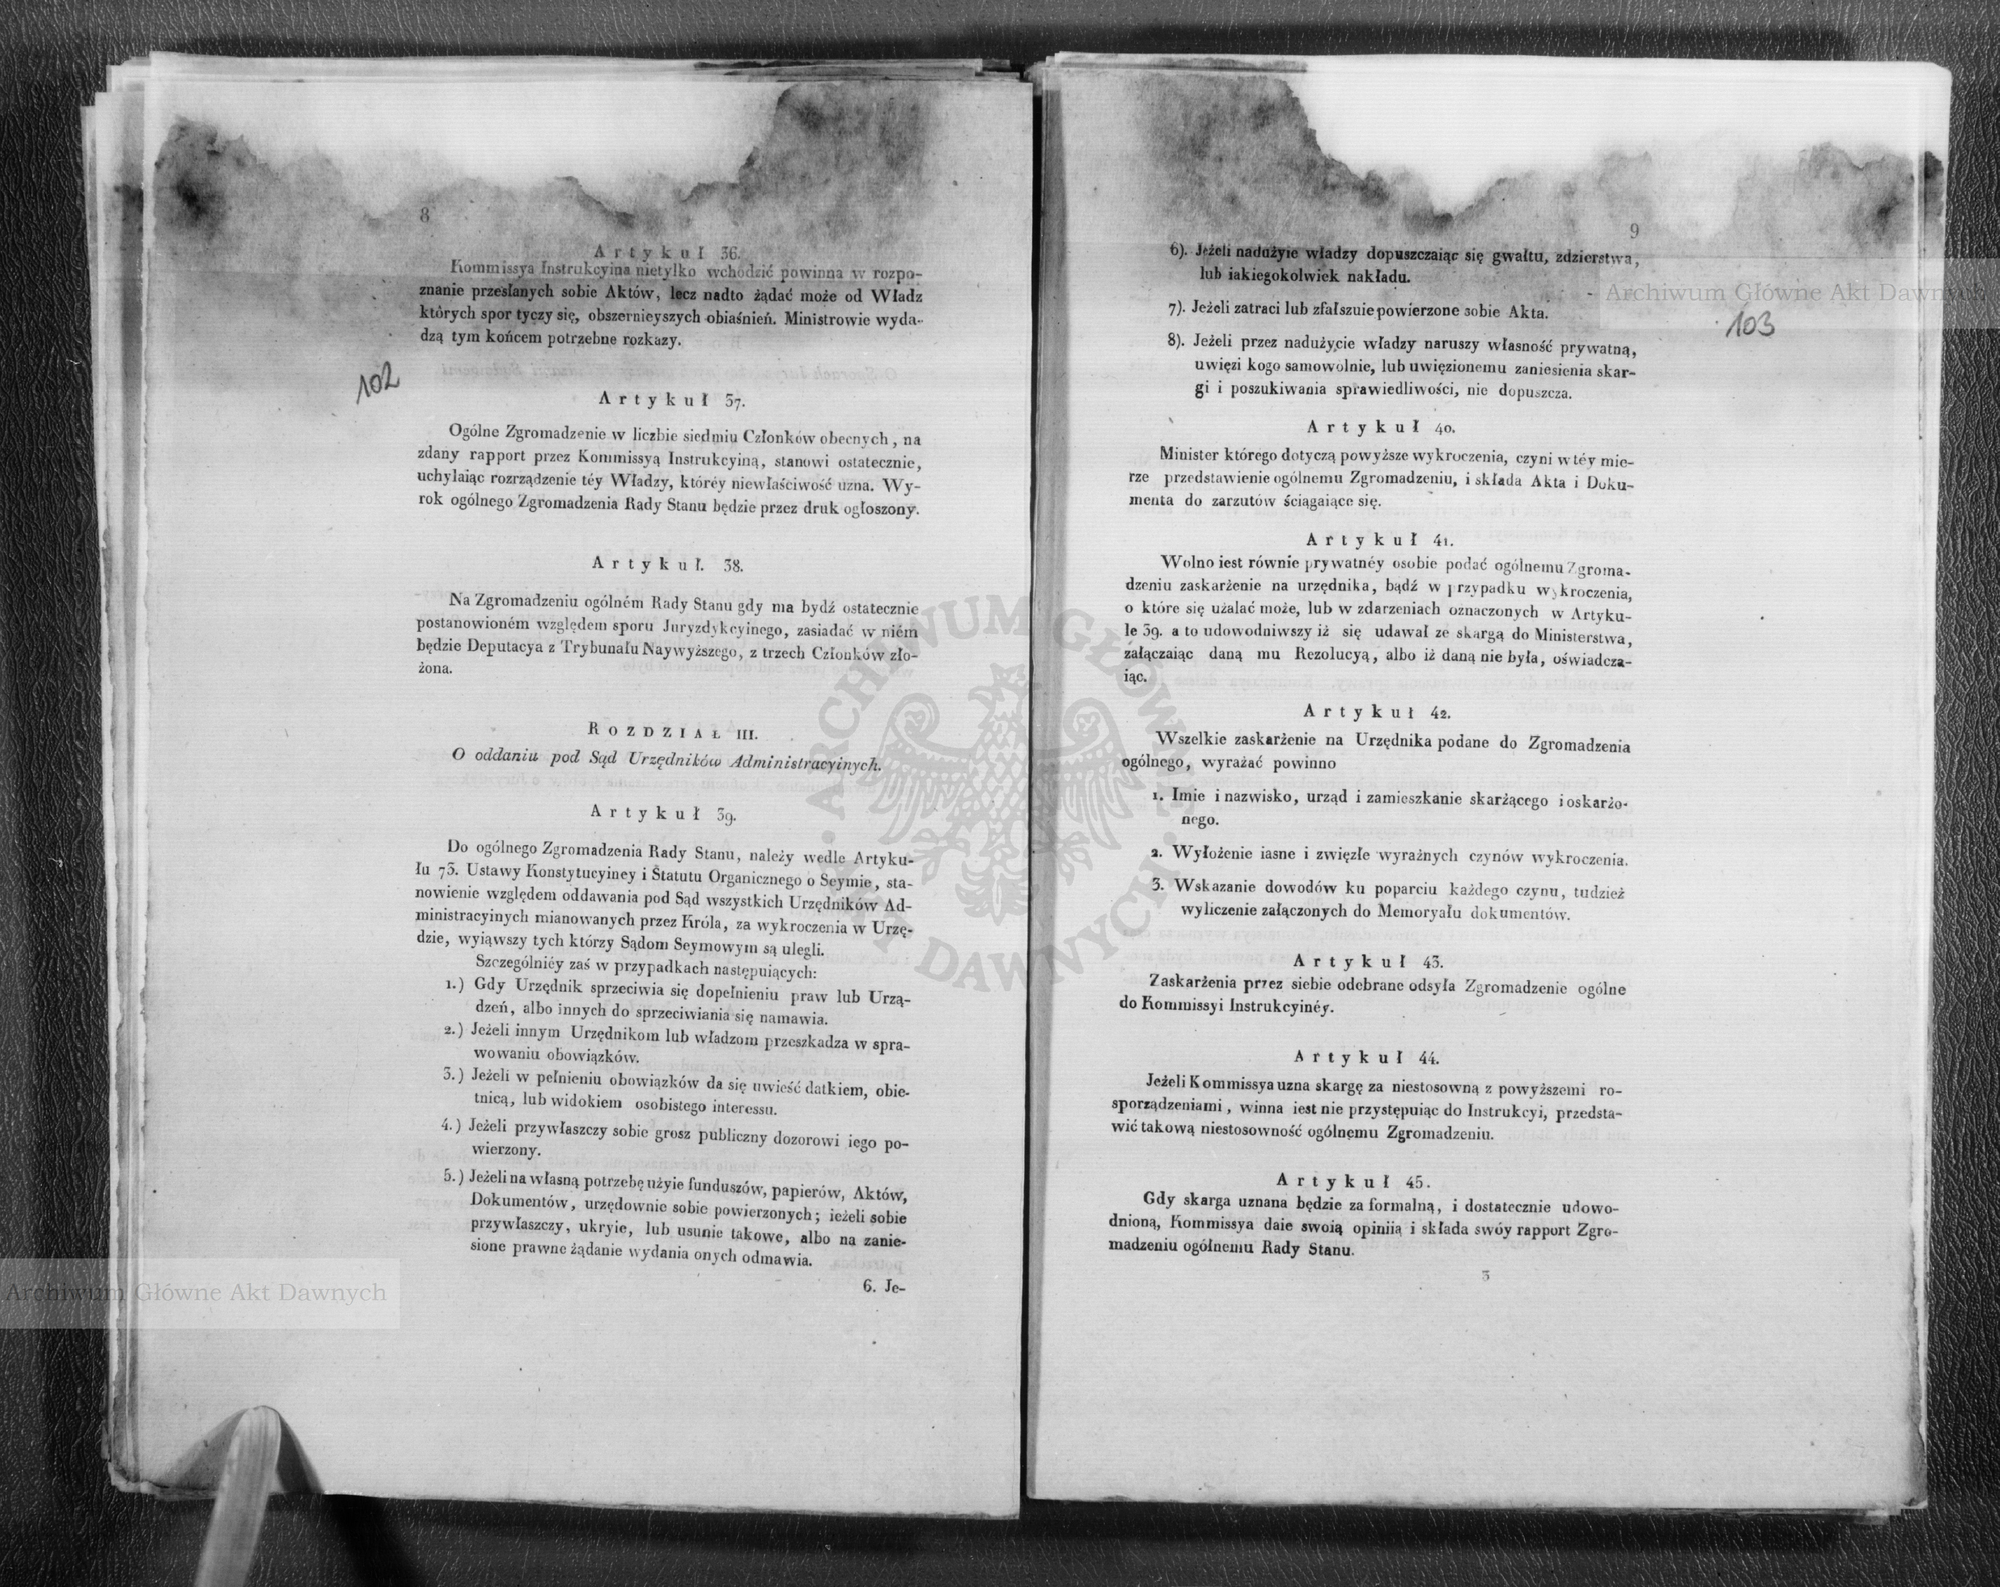 8
Artykuł 36.
Kommissya Instrukcyina nietylko wchodzić powinna w rozpo-
znanie przesłanych sobie Aktów, lecz nadto żądać może od Władz
których spor tyczy się, obszernieyszych obiaśnień. Ministrowie wyda-
dzą tym końcem potrzebne rozkazy.
102
Artykuł 37.
Ogólne Zgromadzenie w liczbie siedmiu Członków obecnych, na
zdany rapport przez Kommissyą Instrukcyiną, stanowi ostatecznie,
uchylaiąc rozrządzenie téy Władzy, któréy niewłaściwość uzna. Wy-
rok ogólnego Zgromadzenia Rady Stanu będzie przez druk ogłoszony.
Artykuł. 38.
Na Zgromadzeniu ogólném Rady Stanu gdy ma bydź ostatecznie
postanowioném względem sporu Juryzdykcyinego, zasiadać w niém
będzie Deputacya z Trybunału Naywyższego, z trzech Członków zło-
żona.
ROZDZIAŁ III.
O oddaniu pod Sąd Urzędników Administracyinych.
Artykuł 39.
Do ogólnego Zgromadzenia Rady Stanu, należy wedle Artyku-
łu 73. Ustawy Konstytucyiney i Statutu Organicznego o Seymie, sta-
nowienie względem oddawania pod Sąd wszystkich Urzędników Ad-
ministracyinych mianowanych przez Króla, za wykroczenia w Urzę-
dzie, wyiąwszy tych którzy Sądom Seymowym są ulegli.
Szczególniéy zaś w przypadkach następuiących:
1.) Gdy Urzędnik sprzeciwia się dopełnieniu praw lub Urzą-
dzeń, albo innych do sprzeciwiania się namawia.
2.) Jeżeli innym Urzędnikom lub władzom przeszkadza w spra-
wowaniu obowiązków.
3.) Jeżeli w pełnieniu obowiązków da się uwieść datkiem, obie-
tnicą, lub widokiem osobistego interessu.
4.) Jeżeli przywłaszczy sobie grosz publiczny dozorowi iego po-
wierzony.
5.) Jeżeli na własną potrzebę użyie funduszów, papierów, Aktów,
Dokumentów, urzędownie sobie powierzonych; ieżeli sobie
przywłaszczy, ukryie, lub usunie takowe, albo na zanie-
sione prawne żądanie wydania onych odmawia.
6. Je-
Archiwum Główne Akt Dawnych
9
6). Jeżeli nadużyie władzy dopuszczaiąc się gwałtu, zdzierstwa,
lub iakiegokolwiek nakładu.
Archiwum Główne Akt Dawnych
103
7). Jeżeli zatraci lub zfałszuie powierzone sobie Akta.
8). Jeżeli przez nadużycie władzy naruszy własność prywatną,
uwięzi kogo samowolnie, lub uwięzionemu zaniesienia skar-
gi i poszukiwania sprawiedliwości, nie dopuszcza.
Artykuł 40.
Minister którego dotyczą powyższe wykroczenia, czyni w téy mie-
rze przedstawienie ogólnemu Zgromadzeniu, i składa Akta i Doku-
menta do zarzutów ściągaiące się.
Artykuł 41.
Wolno iest równie prywatnéy osobie podać ogólnemu Zgroma-
dzeniu zaskarżenie na urzędnika, bądź w przypadku wykroczenia,
o które się użalać może, lub w zdarzeniach oznaczonych w Artyku-
le 39. a to udowodniwszy iż się udawał ze skargą do Ministerstwa,
załączaiąc daną mu Rezolucyą, albo iż daną nie była, oświadcza-
iąc.
Artykuł 42.
Wszelkie zaskarżenie na Urzędnika podane do Zgromadzenia
ogólnego, wyrażać powinno
1. Imie i nazwisko, urząd i zamieszkanie skarżącego i oskarżo-
nego.
2. Wyłożenie iasne i zwięzłe wyraźnych czynów wykroczenia.
3. Wskazanie dowodów ku poparciu każdego czynu, tudzież
wyliczenie załączonych do Memoryału dokumentów.
Artykuł 43.
Zaskarżenia przez siebie odebrane odsyła Zgromadzenie ogólne
do Kommissyi Instrukcyinéy.
Artykuł 44.
Jeżeli Kommissya uzna skargę za niestosowną z powyższemi ro-
sporządzeniami, winna iest nie przystępuiąc do Instrukcyi, przedsta-
wić takową niestosowność ogólnemu Zgromadzeniu.
Artykuł 45.
Gdy skarga uznana będzie za formalną, i dostatecznie udowo-
dnioną, Kommissya daie swoią opiniią i składa swóy rapport Zgro-
madzeniu ogólnemu Rady Stanu.
3
ARCHIWUM GŁÓWNE
AKT DAWNYCH